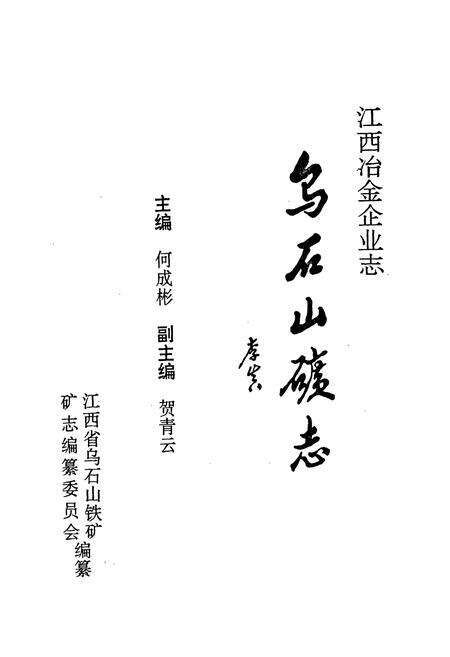 江西冶金企业志
乌石山礦志
主编 何成彬 副主编 贺青云
江西省乌石山铁矿
矿志编纂委员会
编纂